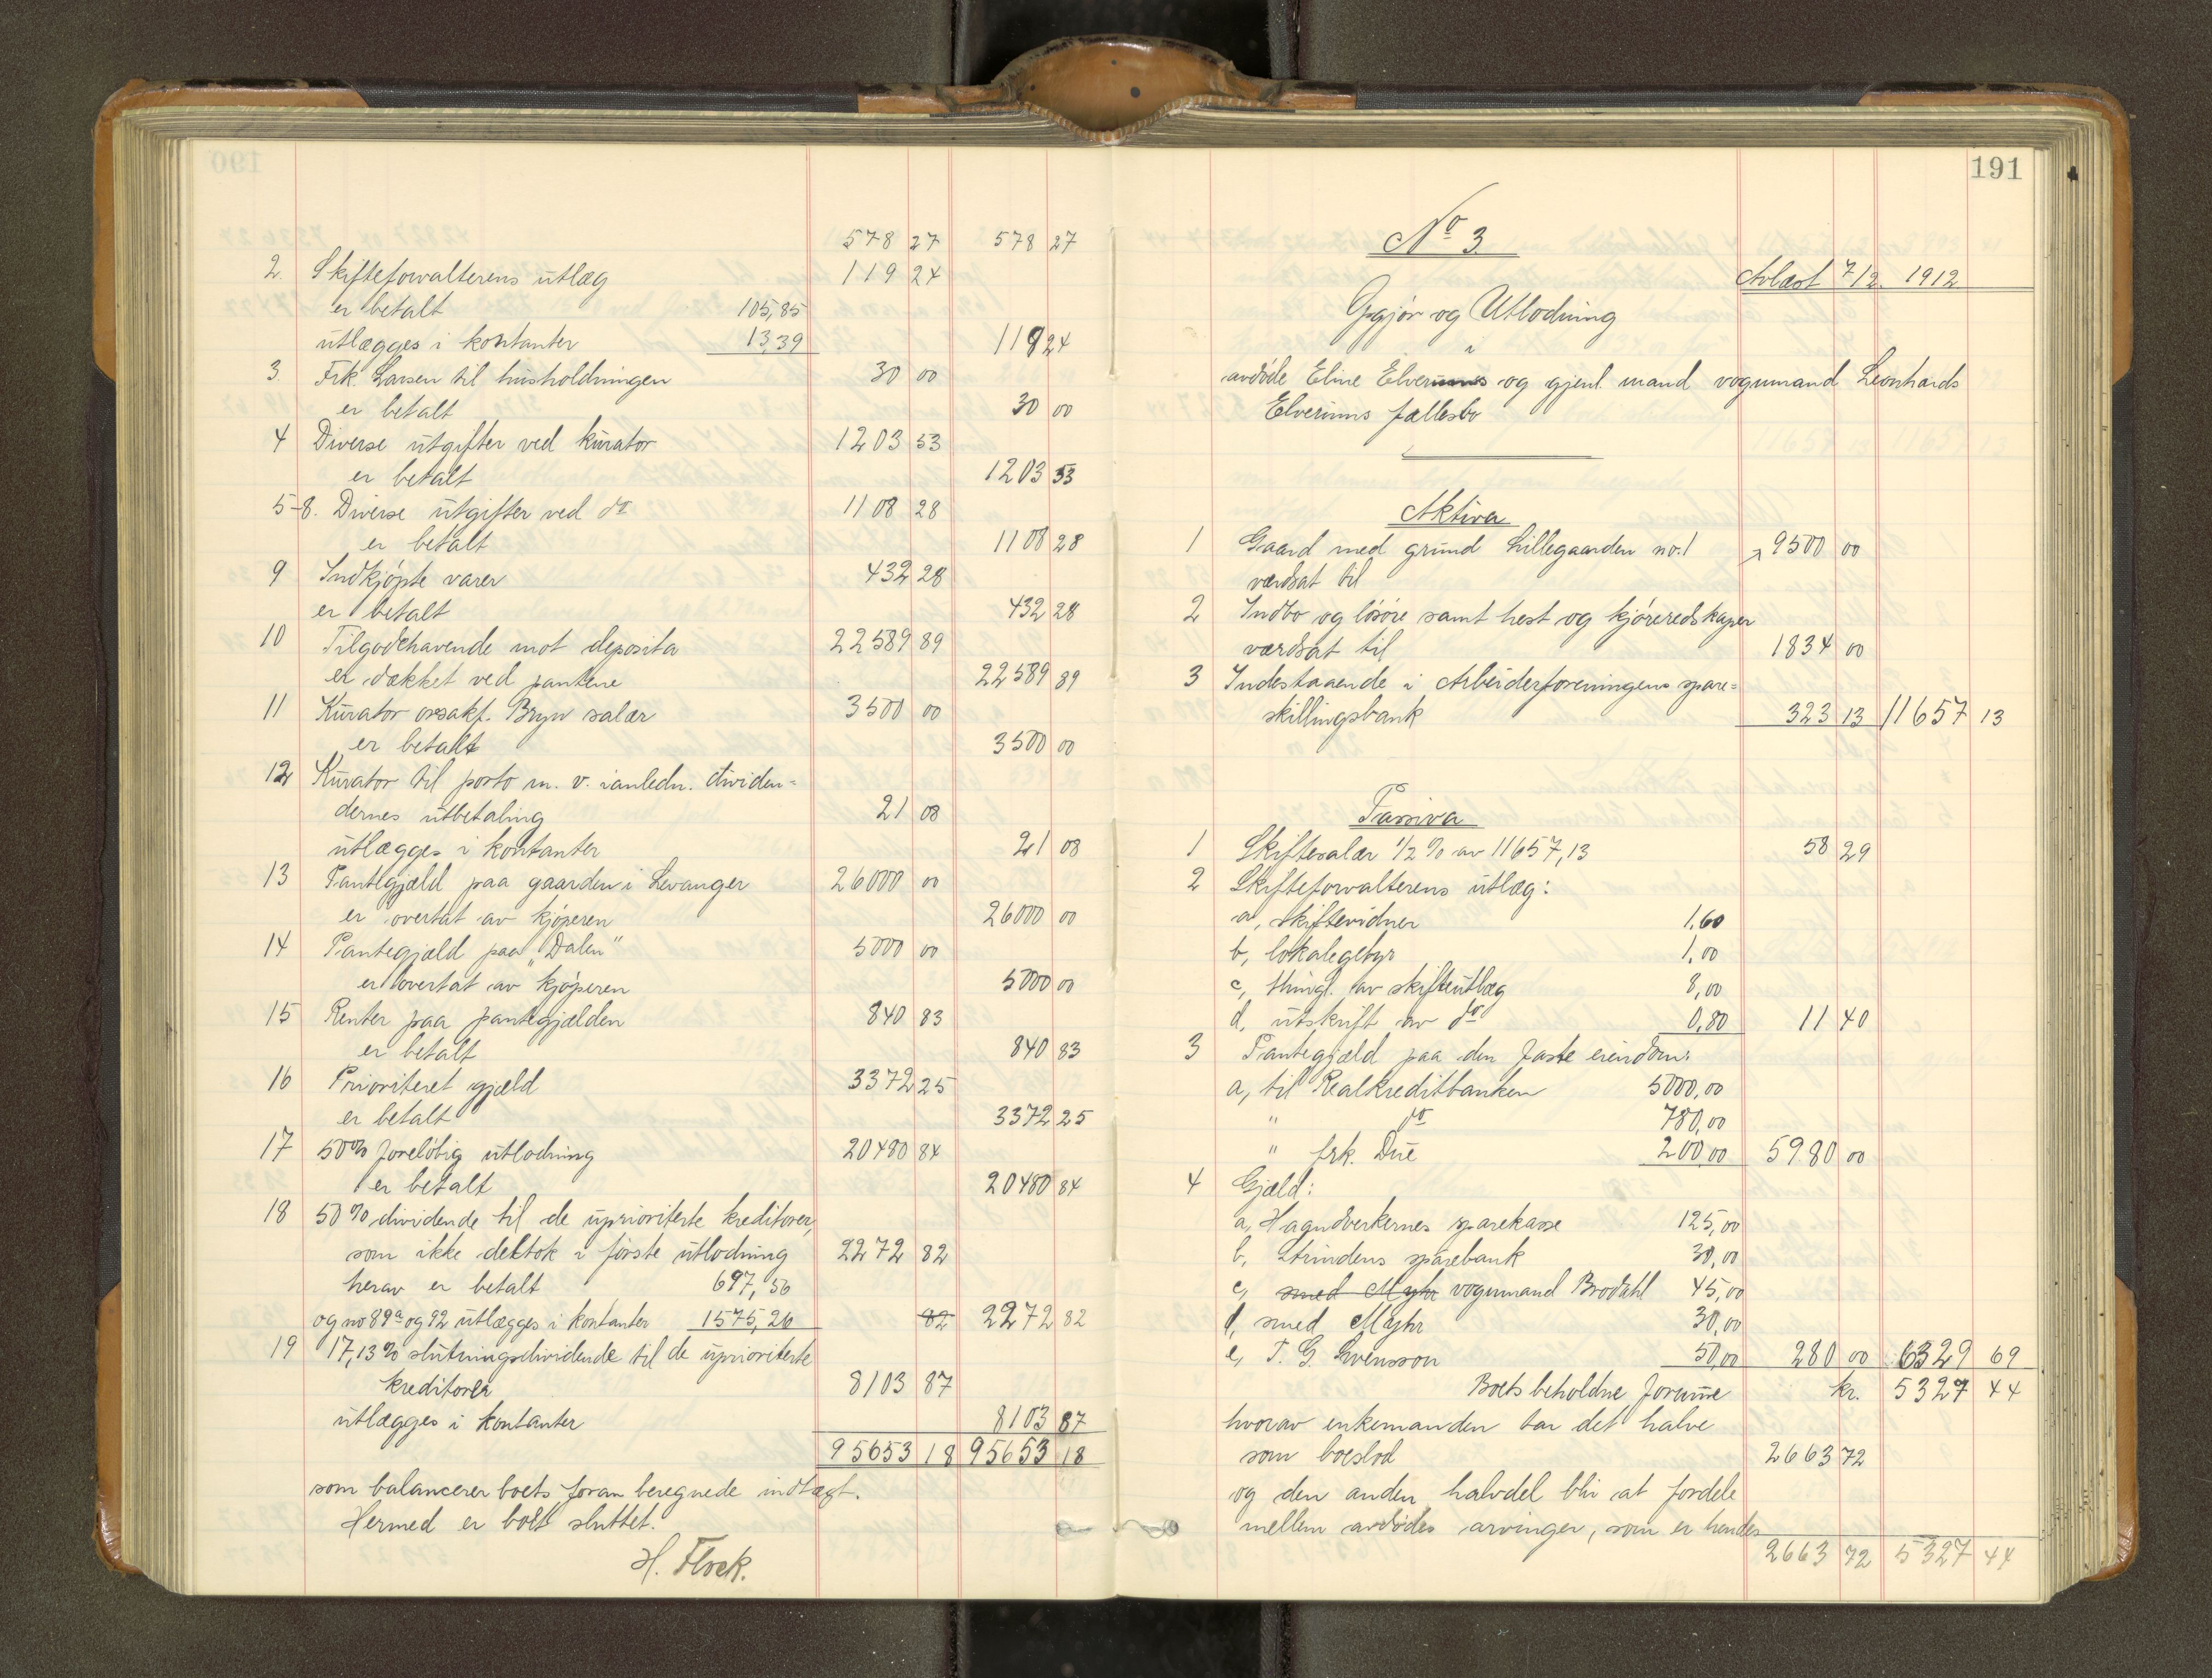 190
578 27 578 27
2. Skifteforvalterens utlæg 119 24
er betalt 105,85
utlægges i kontanter 13,39 119 24
3. Frk. Larsen til husholdningen 30 00
er betalt 30 00
4 Diverse utgifter ved kurator 1203 53
er betalt 1203 53
5-8. Diverse utgifter ved do 1108 28
er betalt 1108 28
9 Indkjøpte varer 432 28
er betalt 432 28
10 Tilgodehavende mot deposita 22589 89
er dækket ved pantene 22589 89
11 Kurator orsakf. Bryn salær 3500 00
er betalt 3500 00
12 Kurator til porto m. v. i anledn. dividen=
dernes utbetaling 21 08
utlægges i kontanter 21 08
13 Pantegjæld paa gaarden i Levanger 26000 00
er overtat av kjøperen 26000 00
14 Pantegjæld paa "Dalen" 5000 00
er overtat av kjøperen 5000 00
15 Renter paa pantegjælden 840 83
er betalt 840 83
16 Prioritert gjæld 3372 25
er betalt 3372 25
17 50% foreløbig utlodning 20480 84
er betalt 20480 84
18 50% dividende til de uprioriterte kreditorer,
som ikke deltok i første utlodning 2272 82
herav er betalt 697,56
og no 89a og 92 utlægges i kontanter 1575,26 82 2272 82
19 17,13% slutningsdividende til de uprioriterte
kreditorer 8103 87
utlægges i kontanter 8103 87
95653 18 95653 18
som balancerer boets foran beregnede indtægt.
Hermed er boet sluttet.
H. Flock.
191
No 3.
Avlæst 7/2. 1912
Opgjør og Utlodning
i
avdøde Eline Elveriums og gjenl. mand vognmand Leonhards
Elveriums fællesbo
Aktiva
1 Gaard med grund Lillegaarden no. 1 9500 00
værdsat til
2 Indbo og løsøre samt hest og kjøreredskaper
værdsat til 1834 00
3 Indestaaende i Arbeiderforeningens spare=
skillingsbank 323 13 11657 13
Passiva
1 Skiftesalær 1/2 % av 11657,13 58 29
2 Skifteforvalterens utlæg:
a, skiftevidner 1,60
b, lokalegebyr 1,00
c, thingl. av skifteutlæg 8,00
d, utskrift av do 0,80 11 40
3 Pantegjæld paa den faste eiendom:
a, til Realkreditbanken 5000,00
" do 780,00
" frk. Due 200,00 5980 00
4 Gjæld:
a, Haandverkernes sparekasse 125,00
b, Strindens sparebank 30,00
c, smed Myhr vognmand Brodahl 45,00
d, smed Myhr 30,00
e, T. G. Svensson 50,00 280 00 6329 69
Boets beholdne formue kr. 5327 44
hvorav enkemanden tar det halve
som boeslod 2663 72
og den anden halvdel blir at fordele
mellem avdødes arvinger, som er hendes
2663 72 5327 44